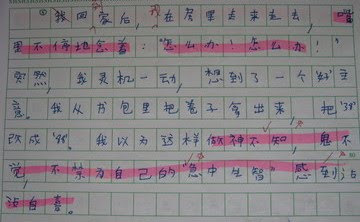 我回家后，在房里走来走去，嘴
里不停地念着：“怎么办！怎么办！”
突然，我灵机一动，想到了一个好主
意。我从书包里把卷子拿出来，把‘39’
改成‘99’。我以为这样做神不知，鬼不
觉，不禁为自己的“急中生智”感到沾
沾自喜。